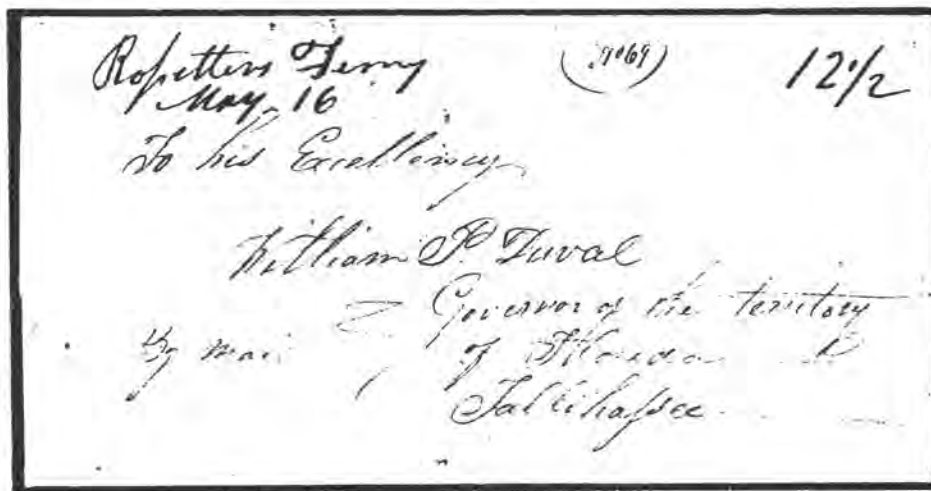 Rossetters Ferry
May 16
12 1/2
To his Excellency
William P. Duval
Governor of the territory
By mai
of Florida
Tallihassee